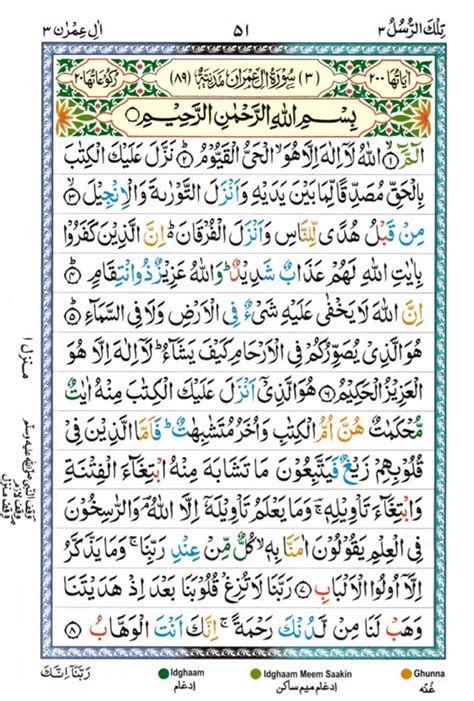 تِلْكَ الرُّسُلُ ٣
٥١
اٰلِ عِمْرٰن ٣
اٰیَاتُهَا ٢٠٠
(٣) سُوْرَةُ اٰلِ عِمْرَانَ مَدَنِيَّةٌ (٨٩)
رُكُوْعَاتُهَا ٢٠
بِسْمِ اللّٰهِ الرَّحْمٰنِ الرَّحِيْمِ
الٓمّٓ ۙ۝١ اللّٰهُ لَاۤ اِلٰهَ اِلَّا هُوَ الْحَیُّ الْقَیُّوْمُ ؕ۝٢ نَزَّلَ عَلَیْكَ الْكِتٰبَ
بِالْحَقِّ مُصَدِّقًا لِّمَا بَیْنَ یَدَیْهِ وَاَنْزَلَ التَّوْرٰىةَ وَالْاِنْجِیْلَ ۙ۝٣
مِنْ قَبْلُ هُدًی لِّلنَّاسِ وَاَنْزَلَ الْفُرْقَانَ ؕ اِنَّ الَّذِیْنَ كَفَرُوْا
بِاٰیٰتِ اللّٰهِ لَهُمْ عَذَابٌ شَدِیْدٌ ؕ وَاللّٰهُ عَزِیْزٌ ذُو انْتِقَامٍ ۝٤
اِنَّ اللّٰهَ لَا یَخْفٰی عَلَیْهِ شَیْءٌ فِی الْاَرْضِ وَلَا فِی السَّمَآءِ ؕ۝٥
هُوَ الَّذِیْ یُصَوِّرُكُمْ فِی الْاَرْحَامِ كَیْفَ یَشَآءُ ؕ لَاۤ اِلٰهَ اِلَّا هُوَ
الْعَزِیْزُ الْحَكِیْمُ ۝٦ هُوَ الَّذِیْۤ اَنْزَلَ عَلَیْكَ الْكِتٰبَ مِنْهُ اٰیٰتٌ
مُّحْكَمٰتٌ هُنَّ اُمُّ الْكِتٰبِ وَاُخَرُ مُتَشٰبِهٰتٌ ؕ فَاَمَّا الَّذِیْنَ فِیْ
قُلُوْبِهِمْ زَیْغٌ فَیَتَّبِعُوْنَ مَا تَشَابَهَ مِنْهُ ابْتِغَآءَ الْفِتْنَةِ
وَابْتِغَآءَ تَاْوِیْلِهٖ ۚ وَمَا یَعْلَمُ تَاْوِیْلَهٗۤ اِلَّا اللّٰهُ ۘ وَالرّٰسِخُوْنَ
فِی الْعِلْمِ یَقُوْلُوْنَ اٰمَنَّا بِهٖ ۙ كُلٌّ مِّنْ عِنْدِ رَبِّنَا ۚ وَمَا یَذَّكَّرُ
اِلَّاۤ اُولُوا الْاَلْبَابِ ۝٧ رَبَّنَا لَا تُزِغْ قُلُوْبَنَا بَعْدَ اِذْ هَدَیْتَنَا
وَهَبْ لَنَا مِنْ لَّدُنْكَ رَحْمَةً ۚ اِنَّكَ اَنْتَ الْوَهَّابُ ۝٨
منزل ١
وقف النبی صلی اللہ علیہ وسلم
وقف لازم
وقف منزل
رَبَّنَاۤ اِنَّكَ
Idghaam
اِدغام
Idghaam Meem Saakin
اِدغام میم ساکن
Ghunna
غُنّه